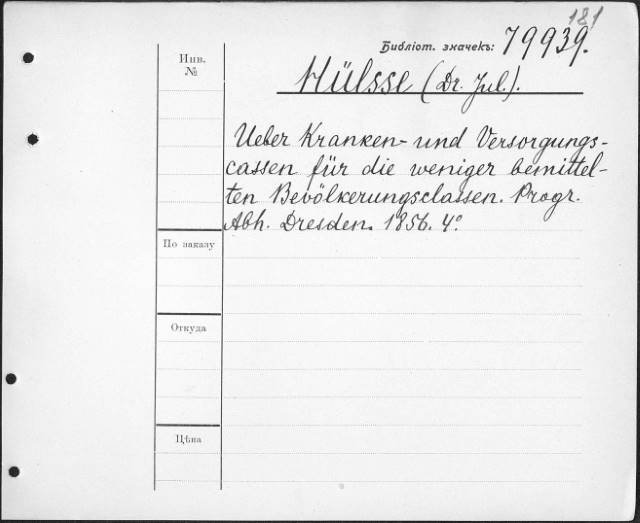 181
Библіот. значекъ: 79939.
Инв.
№
Hülsse (Dr. Jul.).
Ueber Kranken- und Versorgungs-
cassen für die weniger bemittel-
ten Bevölkerungsclassen. Progr.
Abh. Dresden. 1856. 4°.
По заказу
Откуда
Цѣна